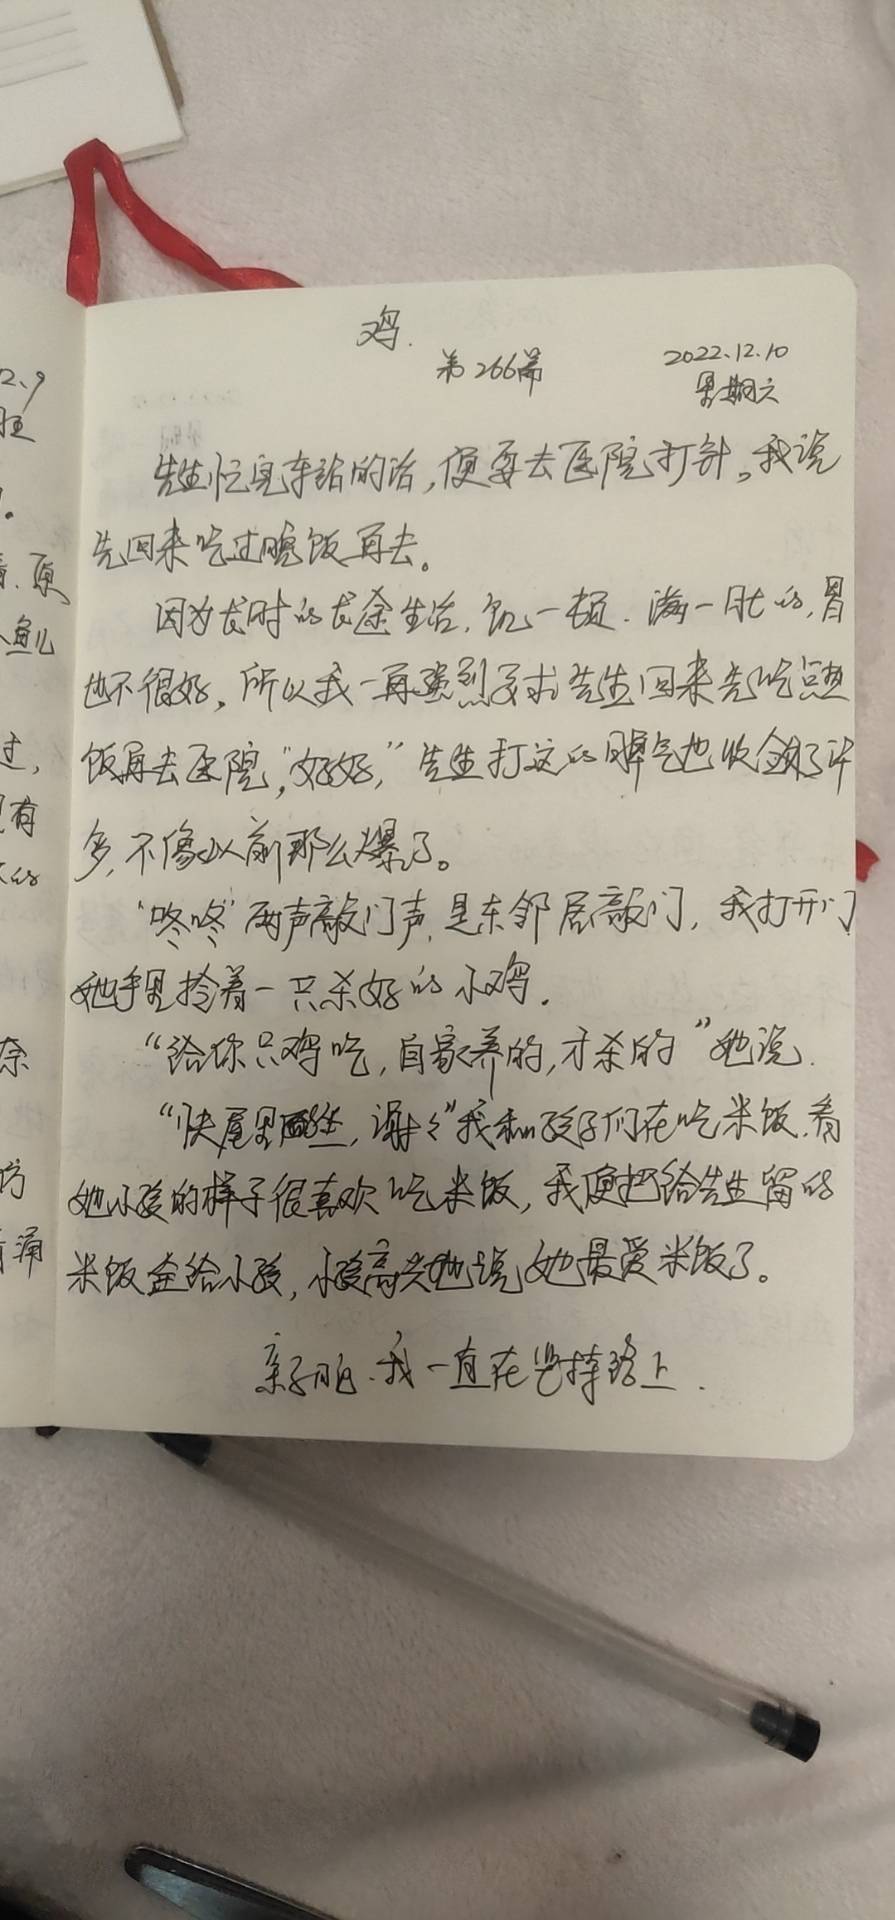 鸡.
第266篇
2022.12.10
星期六
先生忙完车站的活,便要去医院打针。我说
先回来吃过晚饭再去。
因为长时的长途生活,饥一顿.满一肚的,胃
也不很好,所以我一再强烈要求先生回来先吃点热
饭再去医院,"好好,"先生打这的脾气也收敛了许
多,不像以前那么爆了。
"咚咚"两声敲门声,是东邻居敲门,我打开门
她手里拎着一只杀好的小鸡.
"给你只鸡吃,自家养的,才杀的"她说.
"快屋里,谢谢"我和孩子们在吃米饭.看
她小孩的样子很喜欢吃米饭,我便把给先生留的
米饭盛给小孩,小孩高兴地说她最爱米饭了。
我一直在坚持路上.
2.9
旺
原
鱼儿
过,
有
奈
涌